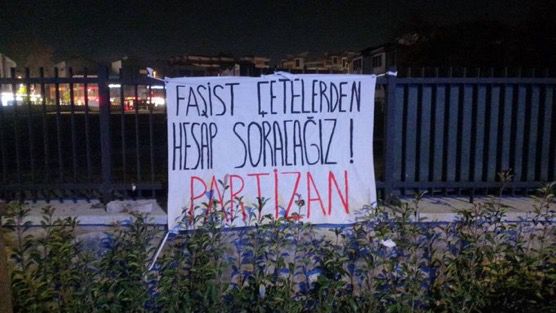 FAŞİST ÇETELERDEN
HESAP SORACAĞIZ !
PARTİZAN